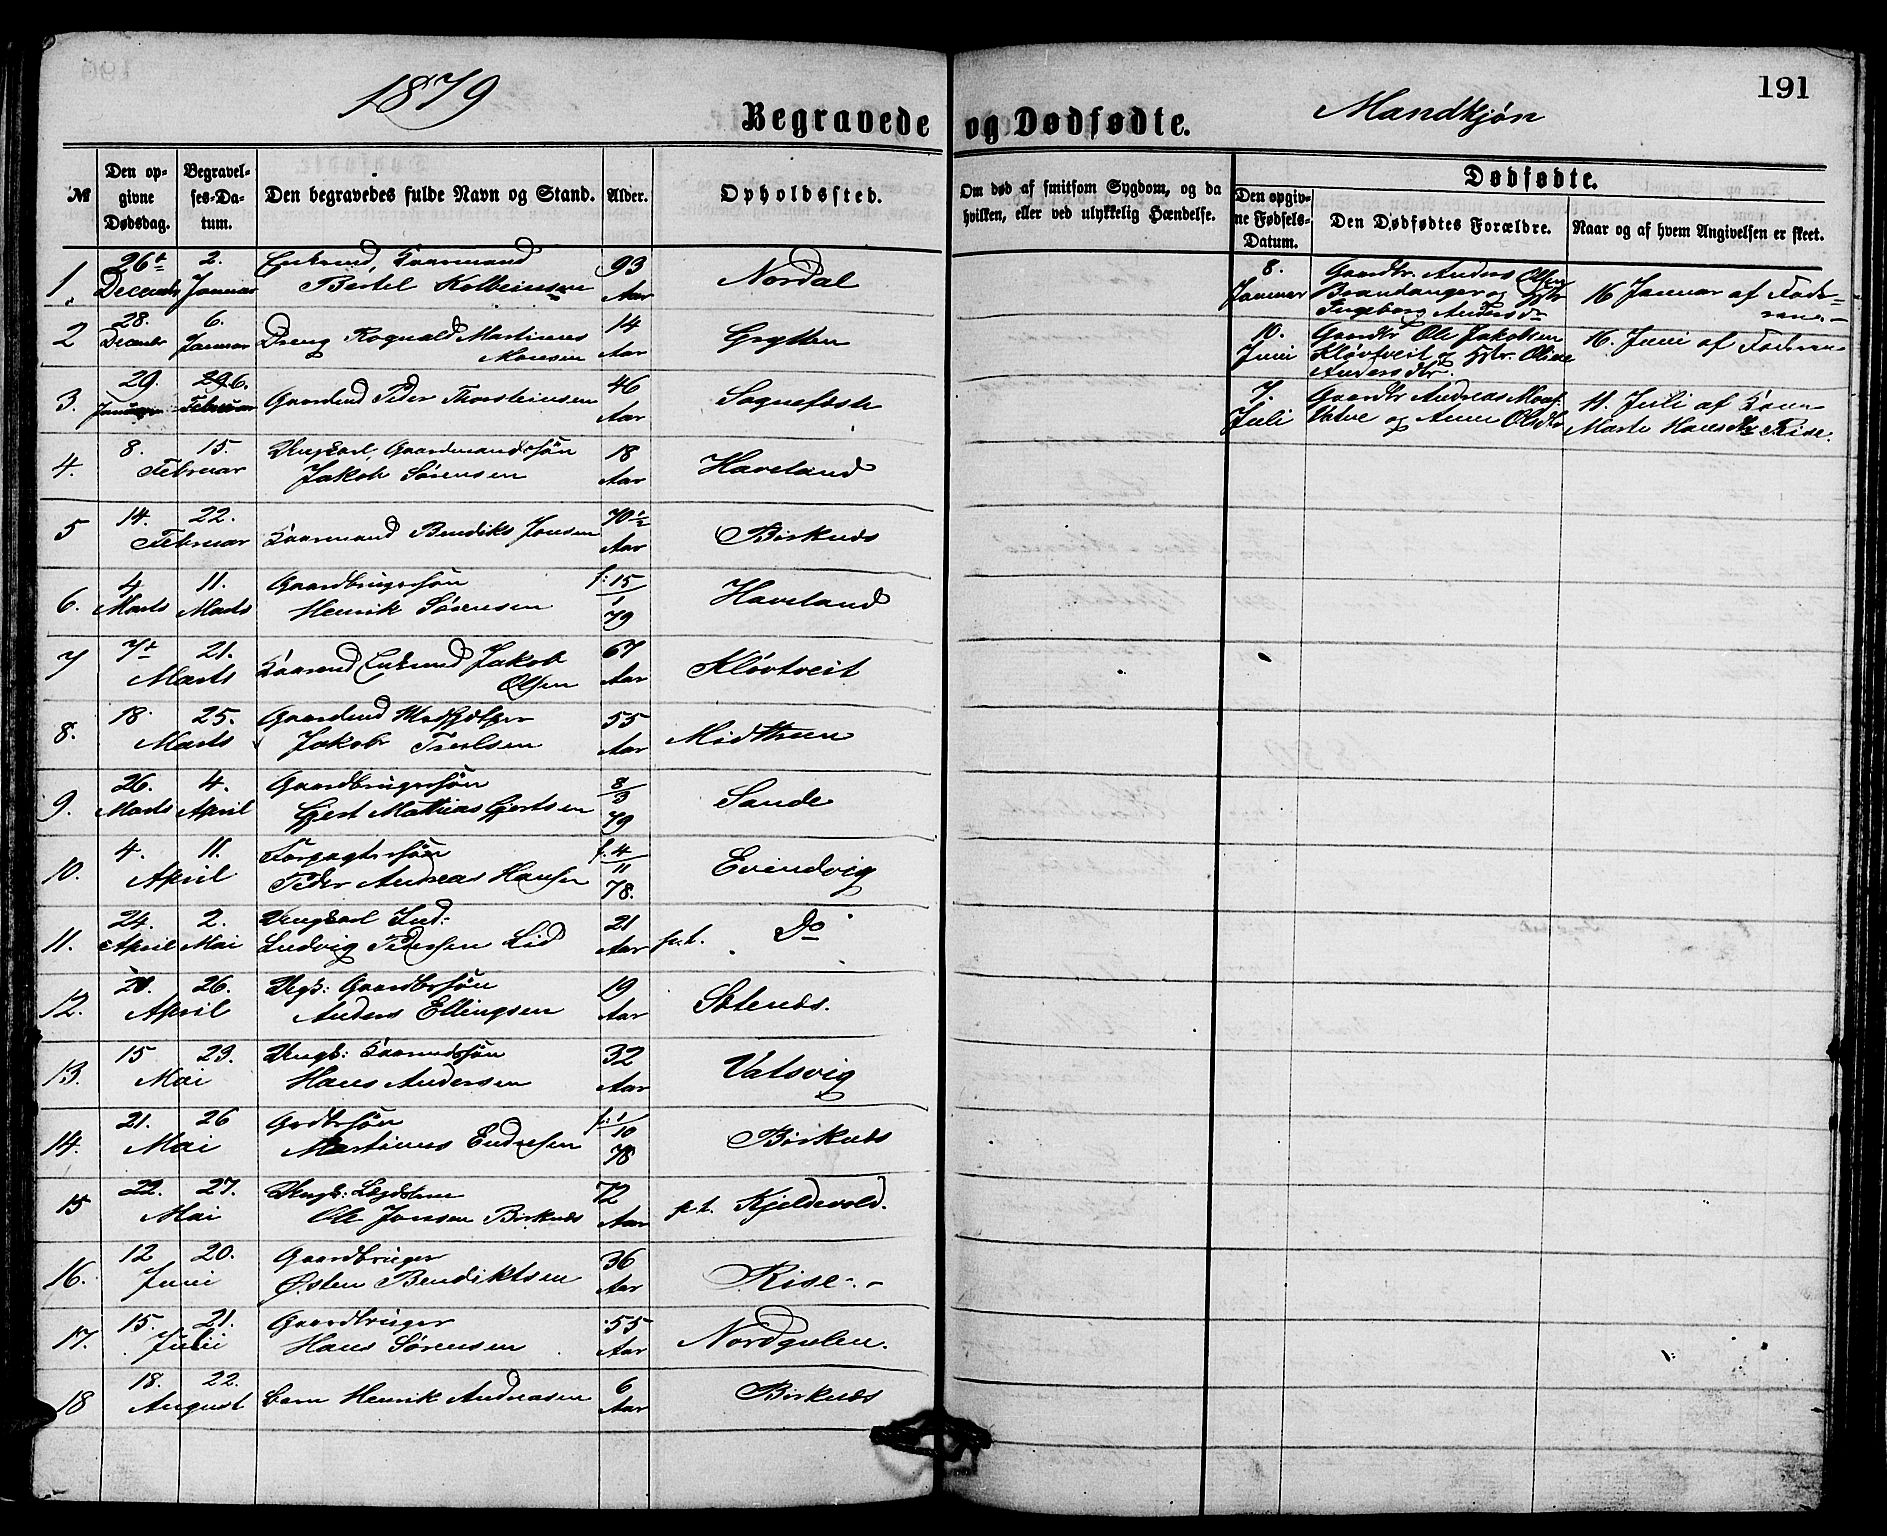 1879
Begravede og Dødfødte.
Mandkjøn
191
№
Den opgivne Dødsdag.
Begravelses-Datum.
Den begravedes fulde Navn og Stand.
Alder.
Opholdssted.
Om død af smitsom Sygdom, og da hvilken, eller ved ulykkelig Hændelse.
Dødfødte.
Den opgivne Fødsels-Datum.
Den Dødfødtes Forældre.
Naar og af hvem Angivelsen er skeet.
1. 26de Decembr 2. Januar Enkemd, Kaarmand
Bertel Kolbeinsen 93 Aar Nordal
2 28. Decembr 6. Januar Dreng Rognald Martinus
Monsen 14 Aar Grytten
3. 29. 6. Februar Gaardmd Peder Thorsteinsen 46 Aar Sognefæste
4. 8. 15. Februar Ungkarl, Gaardmandssøn
Jakob Sørensen 18 Aar Haveland
5 14. 22. Februar Kaarmand Bendiks Jonsen 70½ Aar Birknes
6. 4. Marts 11. Marts Gaardbrugersøn
Henrik Sørensen f: 15/1 79 Haveland
7 7de 21. Marts Kaarmd Enkemd Jakob
Olsen 67 Aar Kløvtveit
8. 18. 25. Marts Gaardmd
Jakob Troelsen 55 Aar Midthun
9. 26. Marts 4. April Gaardbrugersøn
Gjert Mathias Gjertsen 8/3 79 Sande
10. 4. 11. April Forpagtersøn
Peder Andreas Hansen f. 4/11 78. Evindvig
11. 24. April 2. Mai Ungkarl Ind:
Ludvig Pedersen Lid 21 Aar p.t. Do
12. 20. 26. April Ugk: Gaardbrsøn
Anders Ellingsen 19 Aar Stenes.
13. 15 23. Mai Ungk: Kaarmdssøn
Hans Andersen 32 Aar Vatsvig
14. 21. 26 Mai Grdbrsøn
Martinus Endresen f: 1/10 78 Birknes
15 22. 27. Mai Ungk: Lægdslem
Ole Jonsen Birknes 72 Aar p.t. Kjeldevold.
16. 12 20. Juni Gaardbruger
Østen Bendiktsen 36 Aar Rise
17. 15. 21. Juli Gaardbruger
Hans Sørensen 55 Aar Nordgulen.
18 18. 22. August barn Henrik Andreasen 6 Aar Birknes
8. Januar Gaardbr. Anders Olsen
Brandanger og Hstr
Ingeborg Andersdr 16 Januar af Faderen
10. Juni Gaardbr Ole Jakobsen
Kløvtveit og Hstr. Oline
Andersdtr. 16. Juni af Faderen
7. Juli Gaardbr Andreas
og Anne Olsdtr 11. Juli af Kone
Marte Hansdtr Rise.